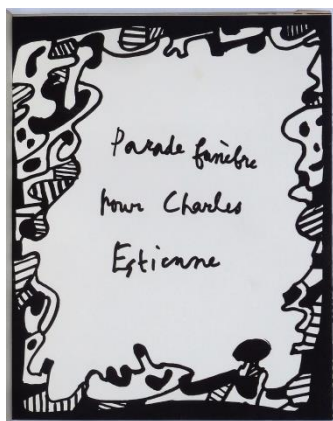 Parade funèbre
pour Charles
Estienne